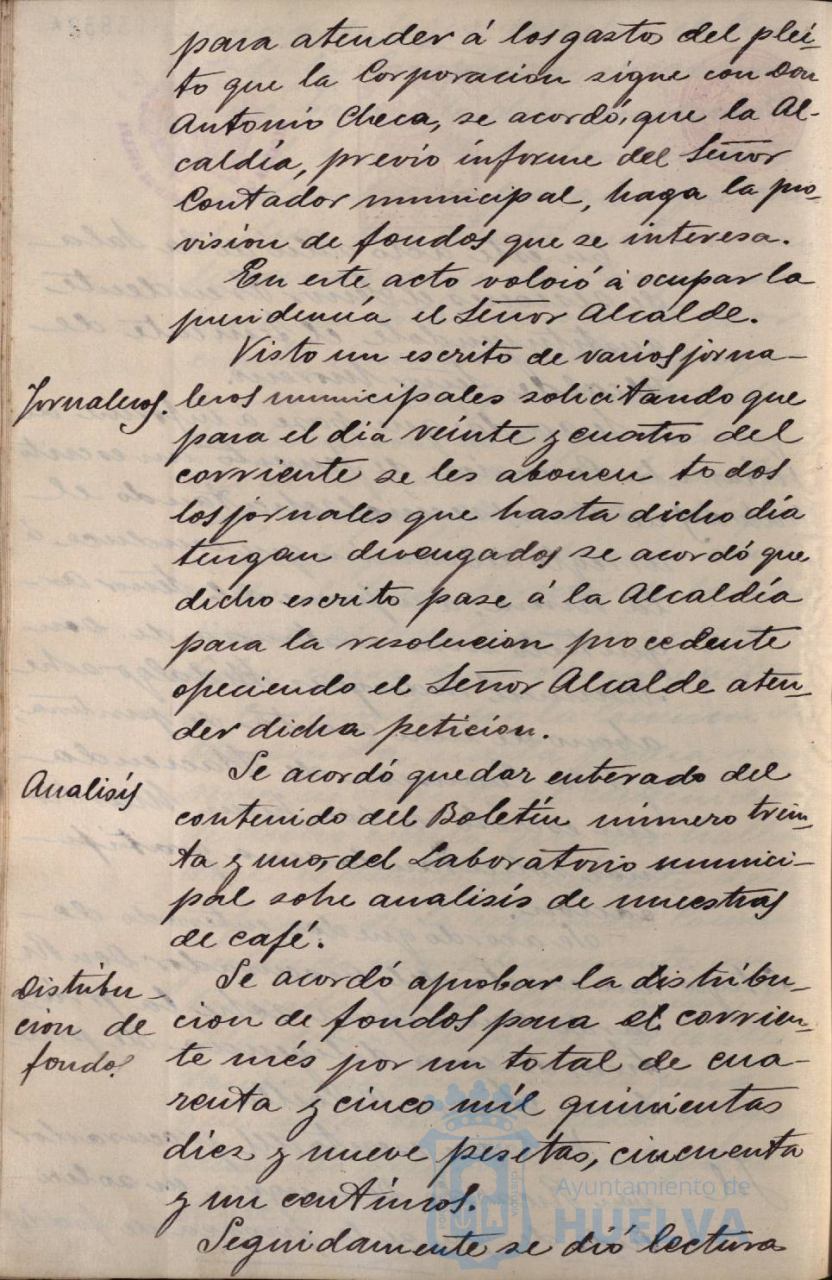 para atender á los gastos del plei-
to que la Corporacion sigue con Don
Antonio Checa, se acordó, que la Al-
caldía, previo informe del Señor
Contador municipal, haga la pro-
vision de fondos que se interesa.
En este acto volvió á ocupar la
presidencia el Señor Alcalde.
Visto un escrito de varios jorna-
Jornaleros. leros municipales solicitando que
para el dia veinte y cuatro del
corriente se les abonen todos
los jornales que hasta dicho día
tengan devengados se acordó que
dicho escrito pase á la Alcaldía
para la resolucion procedente
ofreciendo el Señor Alcalde aten-
der dicha peticion.
Analisis Se acordó quedar enterado del
contenido del Boletín número trein-
ta y uno, del Laboratorio munici-
pal sobre analisis de muestras
de café.
Distribu- Se acordó aprobar la distribu-
cion de cion de fondos para el corrien-
fondos te més por un total de cua-
renta y cinco mil quinientas
diez y nueve pesetas, cincuenta
y un centimos.
Seguidamente se dió lectura
Ayuntamiento de
HUELVA